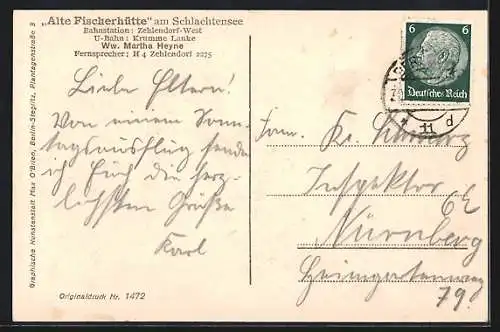 „Alte Fischerhütte" am Schlachtensee
Bahnstation: Zehlendorf-West
U-Bahn: Krumme Lanke
Ww. Martha Heyne
Fernsprecher: H 4 Zehlendorf 2275
Liebe Eltern!
Von einem Sonn-
tagsausflug sende
ich Euch die herz-
lichsten Grüße
Karl
Originaldruck Nr. 1472
Graphische Kunstanstalt Max O'Brien, Berlin-Steglitz, Plantagenstraße 3
6 6
Deutsches Reich
11
d
Fam.
Inspektor
Nürnberg
79.